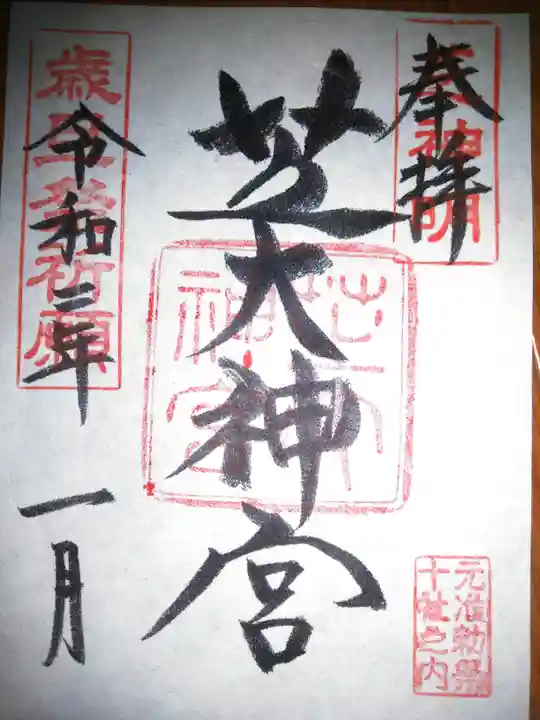 奉拝
芝大神宮
芝大神宮
令和三年
一月
元准勅祭
十社之内